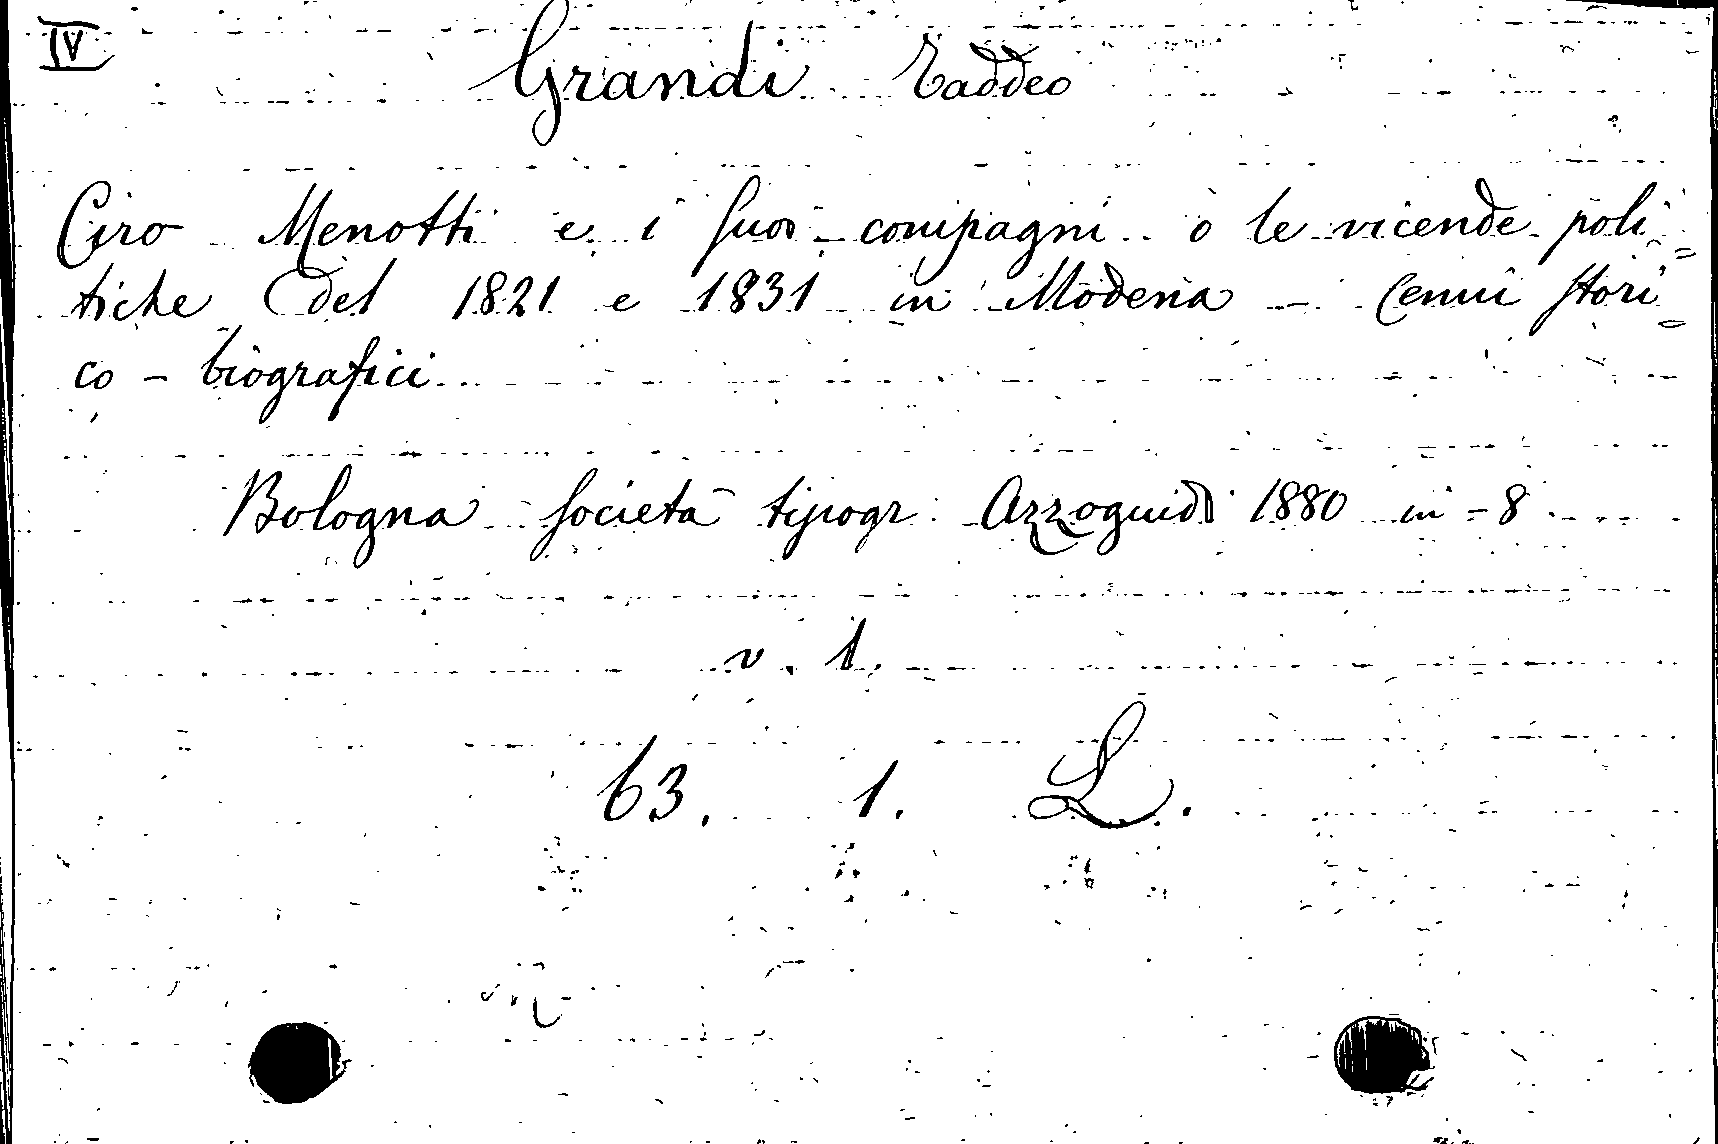 IV
Grandi Taddeo
Ciro Menotti e i suoi compagni o le vicende poli=
tiche del 1821 e 1831 in Modena - Cenni stori=
co - biografici
Bologna Società tipogr. Azzoguidi 1880 in-8
v. 1.
63. 1. L.